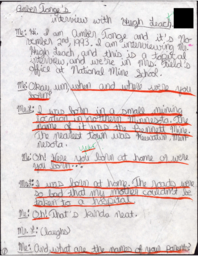 Amber Tonge's
interview with Hugh Leach
Me: Hi I am Amber Tonge and it's No-
vember 2nd, 1993. I am interviewing Mr.
Hugh Leach and this is a topical
interview, and we're in Mrs.
office at National Mine School.
Me: Okay um, when and where were you
born?
Mr. L: I was born in a small mining
location in northern Minnesota. The
name of it was the Bennett Mine.
The nearest town was Keewatin, Min-
nesota.
Me: Oh! Were you born at home or were
you born...
Mr. L: I was born at home. The roads were
so bad that my mother couldn't be
taken to a hospital.
Me: Oh! That's kinda neat.
Mr. L: (laughs)
Me: And what are the names of your parents?